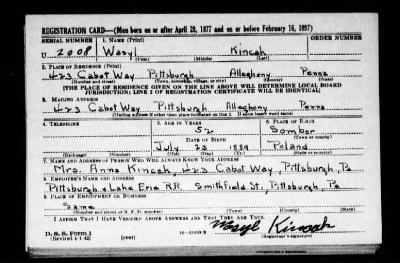 REGISTRATION CARD—(Men born on or after April 28, 1877 and on or before February 16, 1897)
SERIAL NUMBER 1. NAME (Print) ORDER NUMBER
U 2008 Wasyl Kincah
(First) (Middle) (Last)
2. PLACE OF RESIDENCE (Print)
423 Cabot Way Pittsburgh Allegheny Penna
(Number and street) (Town, township, village, or city) (County) (State)
[THE PLACE OF RESIDENCE GIVEN ON THE LINE ABOVE WILL DETERMINE LOCAL BOARD
JURISDICTION; LINE 2 OF REGISTRATION CERTIFICATE WILL BE IDENTICAL]
3. MAILING ADDRESS
423 Cabot Way Pittsburgh Allegheny Penna
[Mailing address if other than place indicated on line 2. If same insert word same]
4. TELEPHONE 5. AGE IN YEARS 6. PLACE OF BIRTH
52 Sombor
DATE OF BIRTH (Town or county)
July 23 1889 Poland
(Exchange) (Number) (Mo.) (Day) (Yr.) (State or country)
7. NAME AND ADDRESS OF PERSON WHO WILL ALWAYS KNOW YOUR ADDRESS
Mrs. Anna Kincah, 423 Cabot Way, Pittsburgh, Pa
8. EMPLOYER'S NAME AND ADDRESS
Pittsburgh & Lake Erie R.R. Smithfield St., Pittsburgh, Pa
9. PLACE OF EMPLOYMENT OR BUSINESS
Same
(Number and street or R. F. D. number) (Town) (County) (State)
I AFFIRM THAT I HAVE VERIFIED ABOVE ANSWERS AND THAT THEY ARE TRUE.
D. S. S. FORM 1
(Revised 4-1-42) (over) Wasyl Kincah
(Registrant's signature)